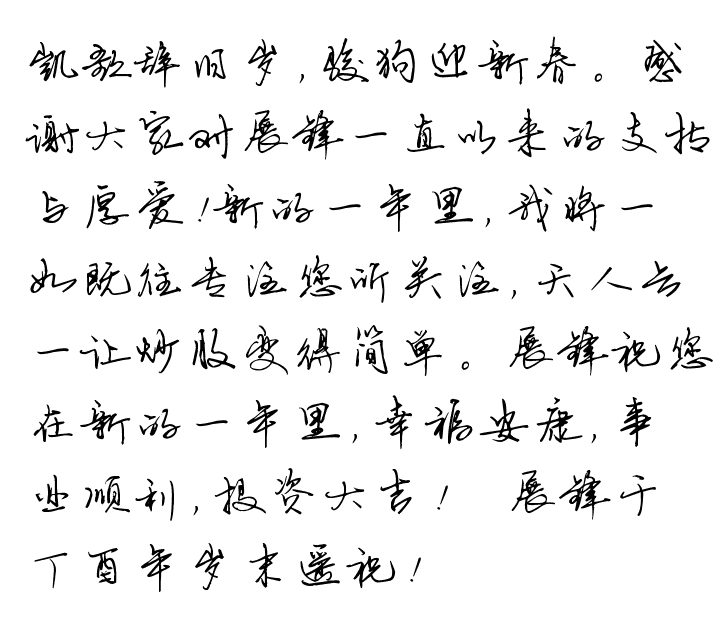 凯歌辞旧岁,骏狗迎新春。感
谢大家对展锋一直以来的支持
与厚爱!新的一年里,我将一
如既往专注您所关注,天人云
一让炒股变得简单。展锋祝您
在新的一年里,幸福安康,事
业顺利,投资大吉! 展锋于
丁酉年岁末遥祝!